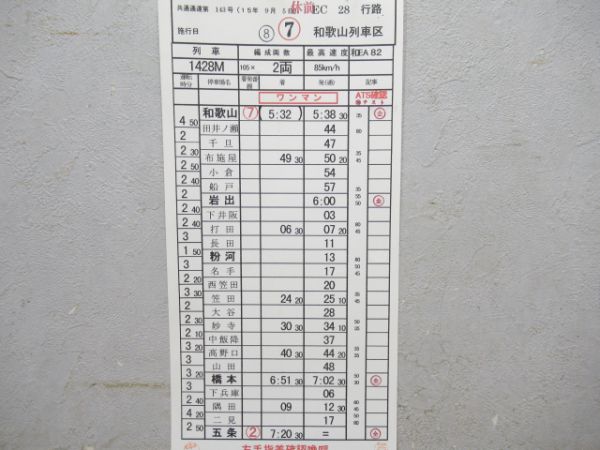 共通運達第 163号 (15年 9月 5日) 休前 EC 28 行路
施行日 ⑧ ⑦ 和歌山列車区
列車 編成両数 最高速度 和EA82
1428M 105× 2両 85km/h
運転時分 停車場名 着発番線 着 発(通) 記事
ワンマン ATS確認
和歌山 ⑦ (5:32) 5:38 30 35
4 50 田井ノ瀬 44 80
2 千旦 47
2 30 布施屋 49 30 50 20 35 45
3 小倉 54
2 船戸 57 35
2 40 岩出 6:00 55 50
2 40 下井阪 03
2 40 打田 06 30 07 20 80 45
3 長田 11
1 50 粉河 13
3 名手 17 80 50
2 20 西笠田 20
3 30 笠田 24 20 25 10 35 45
2 大谷 28
2 30 妙寺 30 30 34 10 50 35
2 10 中飯降 37
3 20 高野口 40 30 44 20 35 45
3 山田 48
3 20 橋本 6:51 30 7:02 30 50 30
3 下兵庫 06
2 40 隅田 09 12 30 80 45
4 20 二見 17
2 50 五条 ② 7:20 30 =
左手指差確認喚呼